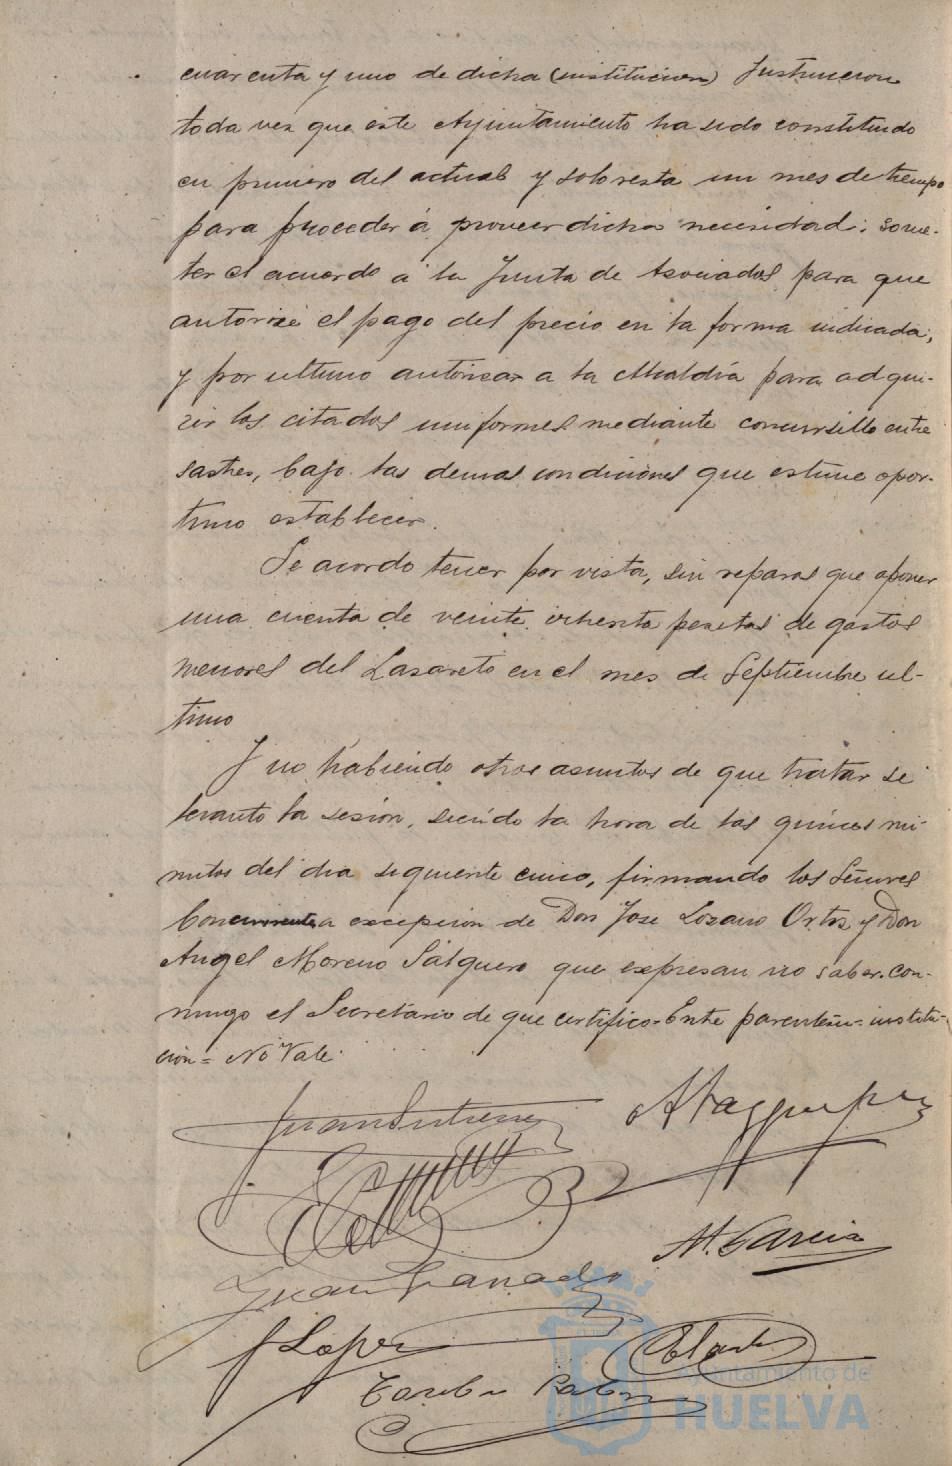 cuarenta y uno de dicha (institucion) Instruccion
toda vez que este Ayuntamiento ha sido constituido
en primero del actual y solo resta un mes de tiempo
para proceder á proveer dicha necesidad: some-
ter el acuerdo a la Junta de Asociados para que
autorize el pago del precio en la forma indicada,
y por ultimo autorizar a la Alcaldia para adqui-
rir los citados uniformes mediante concursillo entre
sastres, bajo las demas condiciones que estime opor-
tuno establecer.
Se acordo tener por vista, sin reparos que oponer
una cuenta de veinte ochenta pesetas de gastos
menores del Lazareto en el mes de Septiembre ul-
timo
Y no habiendo otros asuntos de que tratar se
levanto la sesion, siendo la hora de los quince mi-
nutos del dia siguiente cinco, firmando los Señores
Concurrentes a excepcion de Don Jose Lozano Ortiz y Don
Angel Moreno Salguero que expresan no saber con-
migo el Secretario de que certifico = Entre parentesis = institu-
cion = No Vale.
Juan Gutierrez
M. Garcia
Juan Granado
J Lopez
Ayuntamiento de
HUELVA